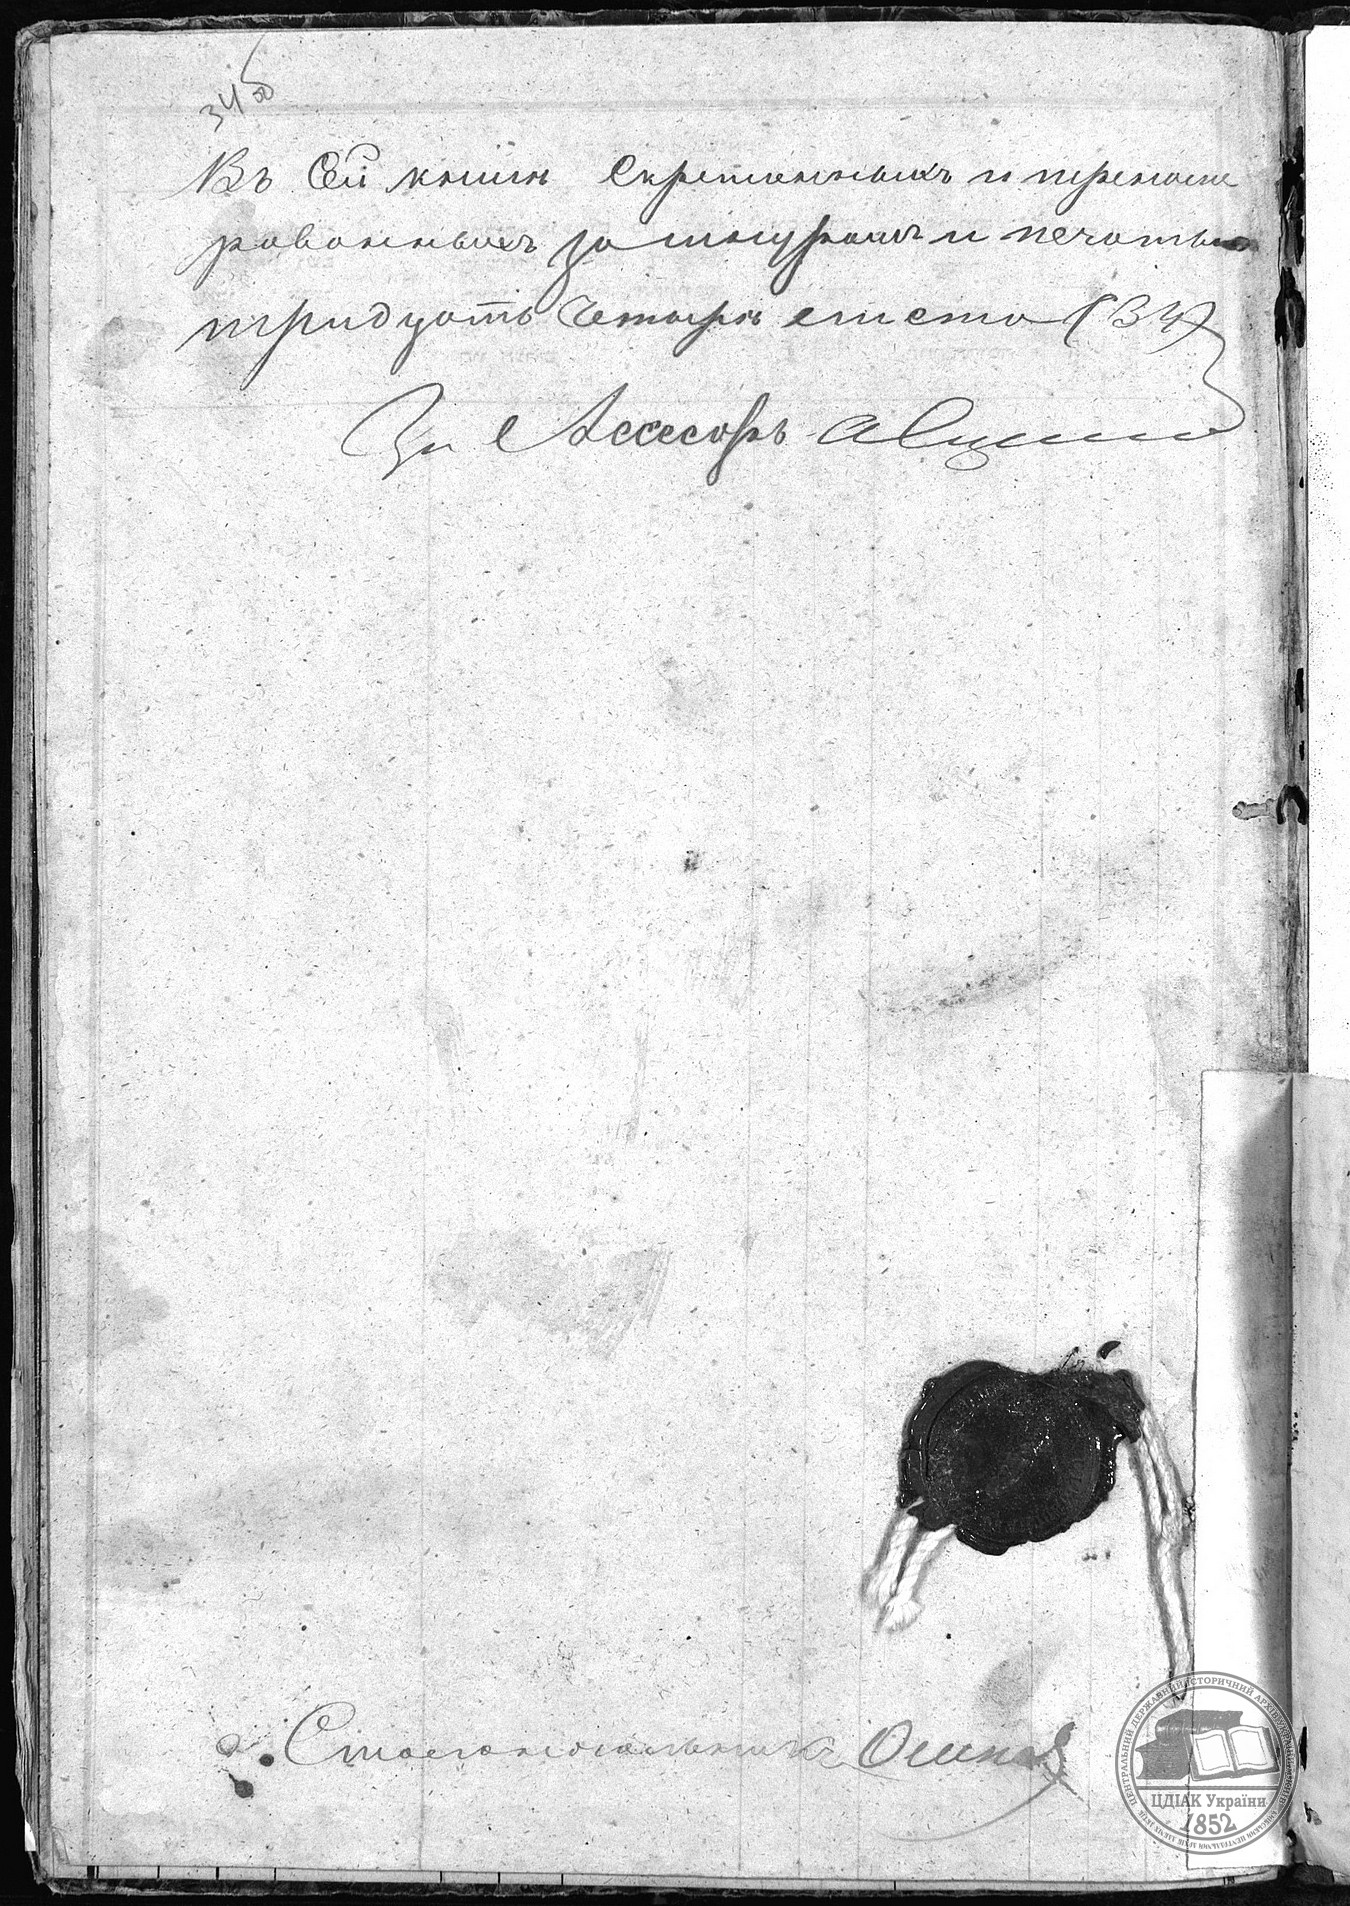 34 об
Въ Сей книги Скрепленныхъ и пронуме
рованныхъ за шнуромъ и печатью
тридцать Четыре листа (34)
За Асессоръ
Столоначальникъ
ЦЕНТРАЛЬНИЙ ДЕРЖАВНИЙ ІСТОРИЧНИЙ АРХІВ УКРАЇНИ
ЦДІАК України
1852